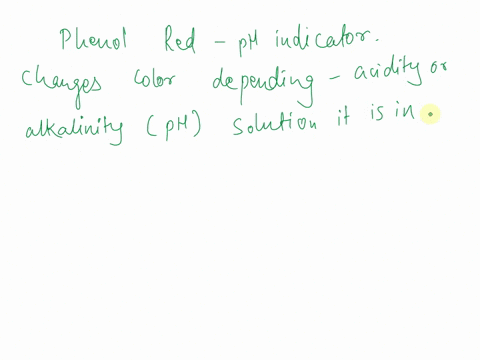 Phenol Red - pH indicator.
Changes color depending - acidity or
alkalinity (pH) solution it is in.